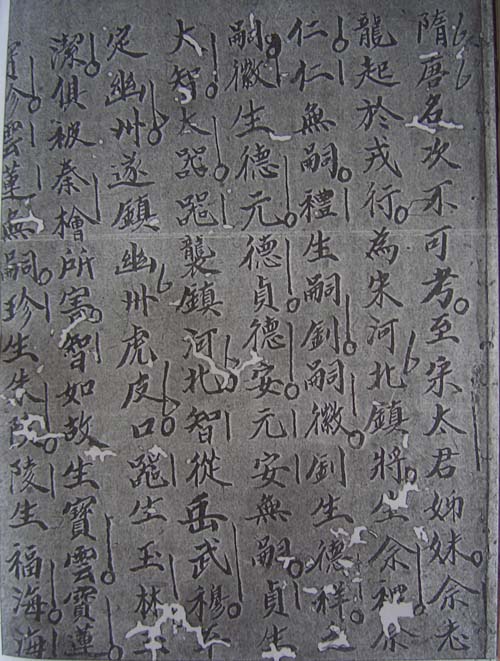 隋唐名次不可考至宋太君姊妹佘
龍起於戎行為宋河北鎮將生佘禮佘
仁仁無嗣禮生嗣釗嗣徽釗生德祥
嗣徽生德元德貞德安元安無嗣貞生
大智大器器襲鎮河北智從岳武穆
從幽州遂鎮幽州虎皮口器生玉林
潔俱被秦檜所害智如故生寶雲寶蓮
珍雲蓮無嗣珍生朱陵陵生福海海